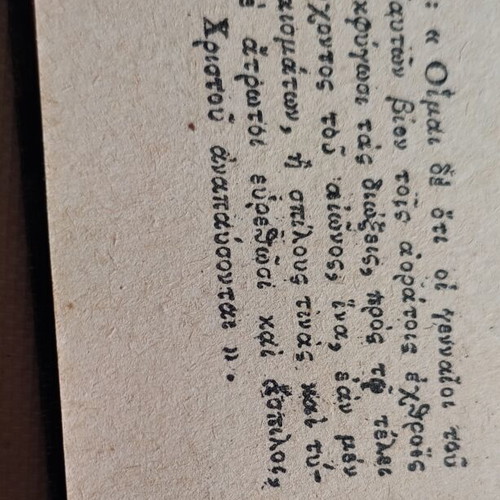 : « Οἶμαι δὲ ὅτι οἱ γενναῖοι τοῦ
αυτῶν βίον τοῖς ἀοράτοις ἐχθροῖς
κφύγωσι τὰς διώξεις πρὸς τῷ τέλει
χοντος τοῦ αἰῶνος, ἵνα, ἐὰν μὲν
κισμάτων, ἢ σπίλους τινὰς καὶ τύ-
ἄτρωτοι εὑρεθῶσι καὶ ἄσπιλοι,
Χριστοῦ ἀναπαύσονται ».